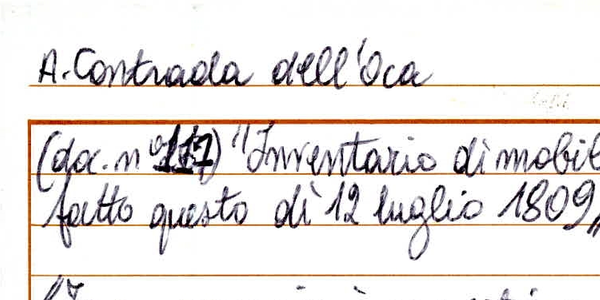 A. Contrada dell'Oca
(doc. n° 117) "Inventario di mobil
fatto questo dì 12 luglio 1809"